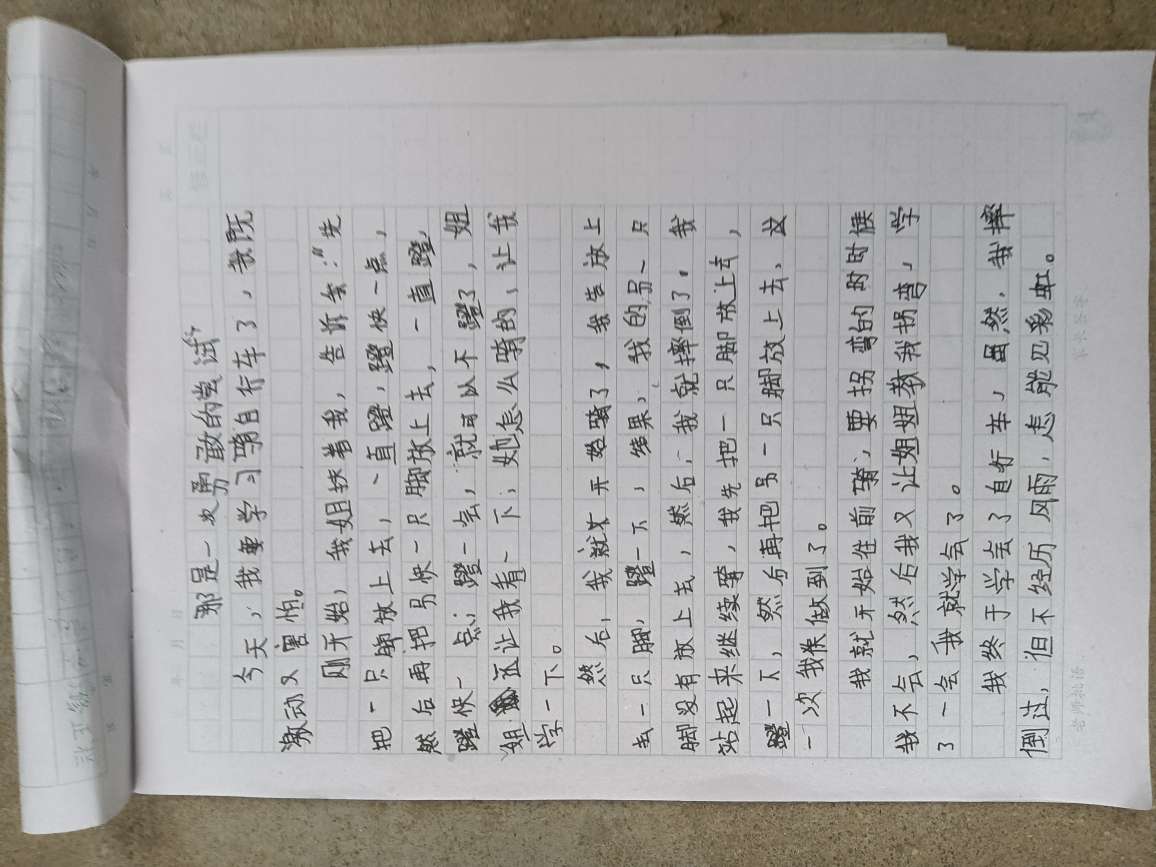 那是一次勇敢的尝试
今天，我要学习骑自行车了，我既
激动又害怕。
刚开始，我姐扶着我，告诉我：“先
把一只脚放上去，一直蹬，蹬快一点，
然后再把另快一只脚放上去，一直蹬，
蹬快一点，蹬一会，就可以不蹬了，姐
姐还让我看一下，她怎么骑的，让我
学一下。
然后，我就开始骑了，我告放上
我一只脚，蹬一下，结果，我的另一只
脚没有放上去，然后，我就摔倒了。我
站起来继续骑，我先把一只脚放上去，
蹬一下，然后再把另一只脚放上去，这
一次我俟做到了。
我就开始往前骑，要拐弯的时时候
我不会，然后我又让姐姐教我拐弯，学
了一会我就学会了。
我终于学会了自行车，虽然，我摔
倒过，但不经历风雨，怎能见彩虹。
年 月 日
老师批语
家长签字